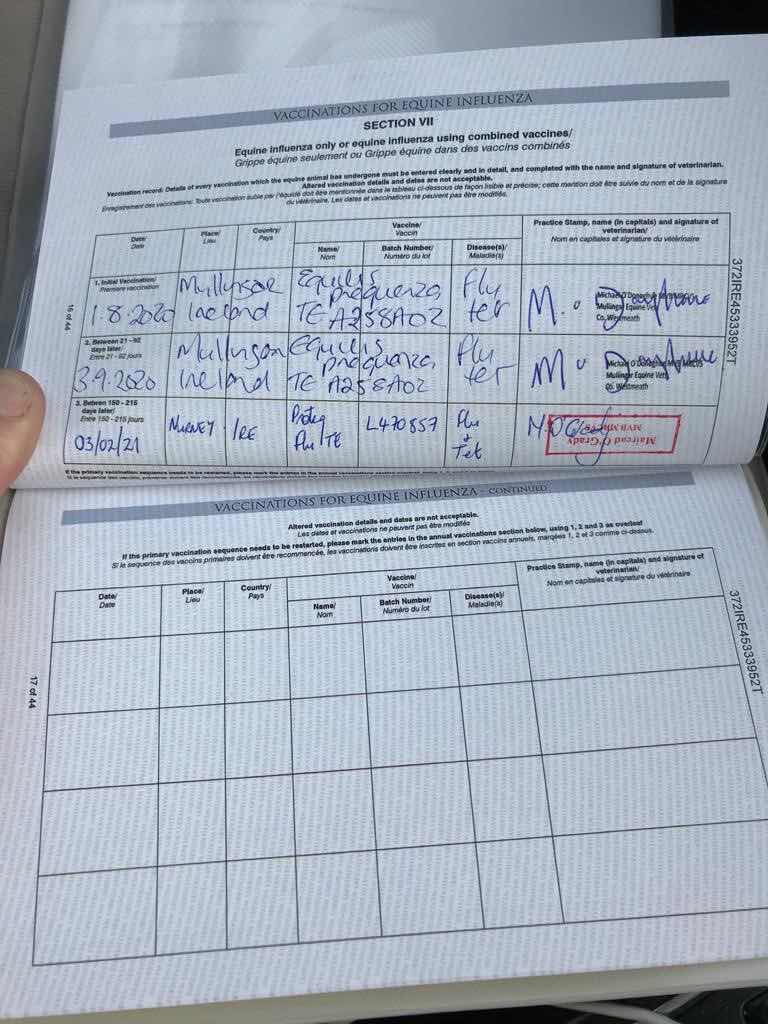 VACCINATIONS FOR EQUINE INFLUENZA
SECTION VII
Equine influenza only or equine influenza using combined vaccines/
Grippe équine seulement ou Grippe équine dans des vaccins combinés
Vaccination record: Details of every vaccination which the equine animal has undergone must be entered clearly and in detail, and completed with the name and signature of veterinarian.
Altered vaccination details and dates are not acceptable.
Enregistrement des vaccinations: Toute vaccination subie par l'équidé doit être mentionnée dans le tableau ci-dessous de façon lisible et précise; cette mention doit être suivie du nom et de la signature
du vétérinaire. Les dates et vaccinations ne peuvent pas être modifiés.
Date/ Place/ Country/ Vaccine/ Practice Stamp, name (in capitals) and signature of
Date Lieu Pays Vaccin veterinarian/
Name/ Batch Number/ Disease(s)/ Nom en capitales et signature du vétérinaire
Nom Numéro du lot Maladie(s)
1. Initial Vaccination/
Première vaccination
1.8.2020 Mullingar Ireland Equilis prequenza TE A258A02 Flu tet M. O'
Michael O'Donoghue
Mullingar Equine Vets
Co. Westmeath
2. Between 21 - 92
days later/
Entre 21 - 92 jours
3.9.2020 Mullingar Ireland Equilis prequenza TE A258A02 Flu tet M O'
Michael O'Donoghue
Mullingar Equine Vets
Co. Westmeath
3. Betwen 150 - 215
days later/
Entre 150 - 215 jours
03/02/21 NURNEY IRE Proteq Flu/TE L470857 Flu & Tet
Mairead O'Grady
MVB
372IRE45333952T
16 of 44
VACCINATIONS FOR EQUINE INFLUENZA – CONTINUED
Altered vaccination details and dates are not acceptable.
Les dates et vaccinations ne peuvent pas être modifiés
If the primary vaccination sequence needs to be restarted, please mark the entries in the annual vaccinations section below, using 1, 2 and 3 as overleaf
Si la sequence des vaccins primaires doivent être recommencée, les vaccinations doivent être inscrites en section vaccins annuels, marquées 1, 2 et 3 comme ci-dessus.
Date/ Place/ Country/ Vaccine/ Practice Stamp, name (in capitals) and signature of
Date Lieu Pays Vaccin veterinarian/
Name/ Batch Number/ Disease(s)/ Nom en capitales et signature du vétérinaire
Nom Numéro du lot Maladie(s)
372IRE45333952T
17 of 44